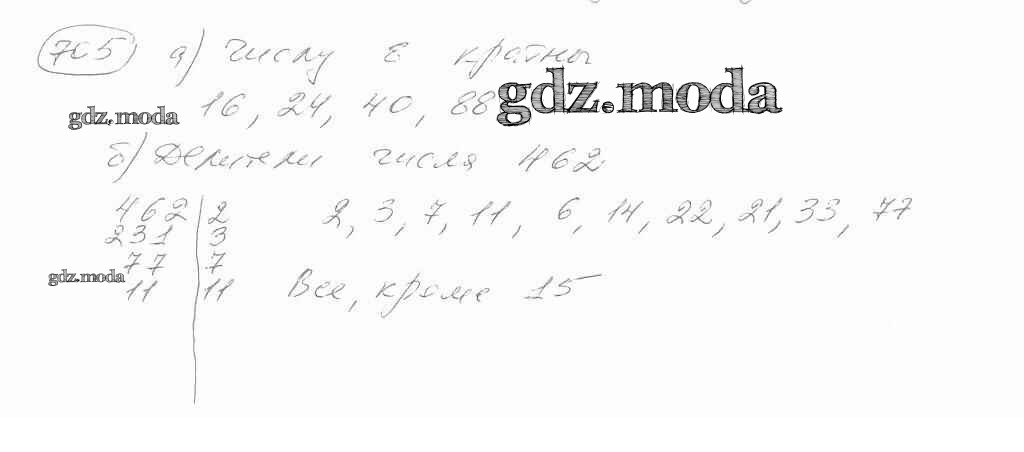 705) а) Числу 8 кратны
gdz.moda 16, 24, 40, 88 gdz.moda
б) Делители числа 462
462 | 2 2, 3, 7, 11, 6, 14, 22, 21, 33, 77
231 | 3
77 | 7
gdz.moda
11 | 11 Все, кроме 15